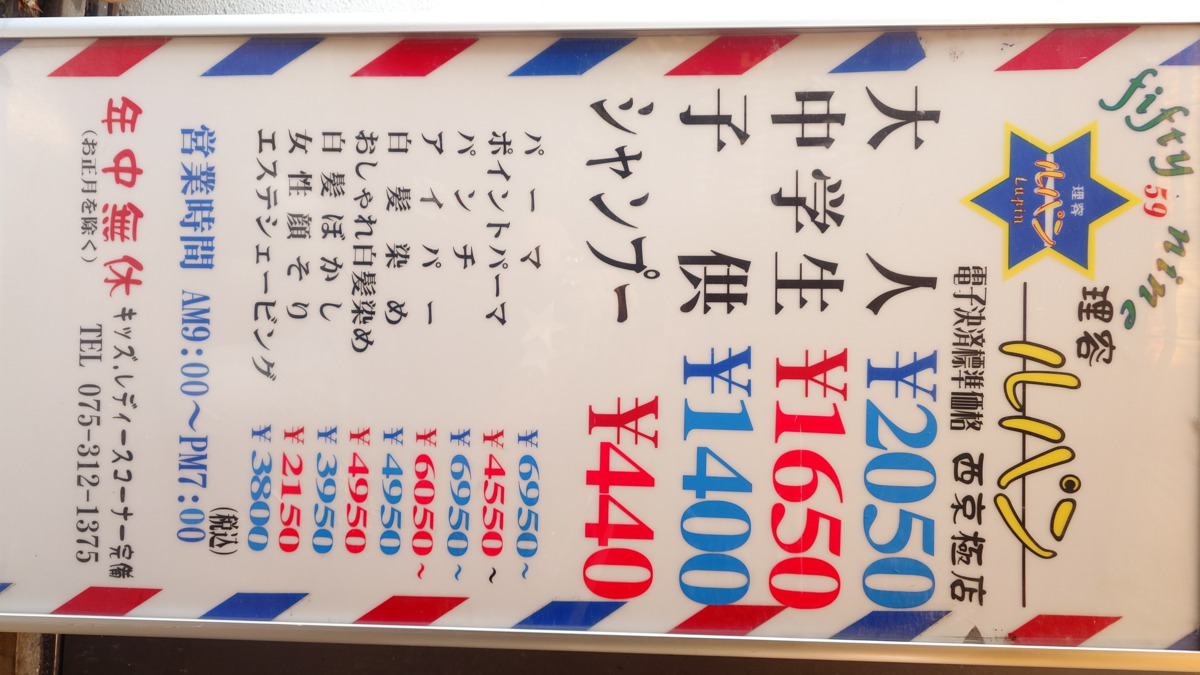 fifty 59 nine
理容
ルパン
Lupin
理容
ルパン
電子決済標準価格 西京極店
大人 ¥2050
中学生 ¥1650
子供 ¥1400
シャンプー ¥440
パーマ ¥6950~
ポイントパーマ ¥4550~
パンチ ¥6950~
アイパー ¥6050~
白髪染め ¥4950
おしゃれ白髪染め ¥4950
白髪ぼかし ¥3950
女性顔そり ¥2150
エステシェービング ¥3800
(税込)
営業時間 AM9:00~PM7:00
年中無休 キッズ、レディースコーナー完備
(お正月を除く) TEL 075-312-1375